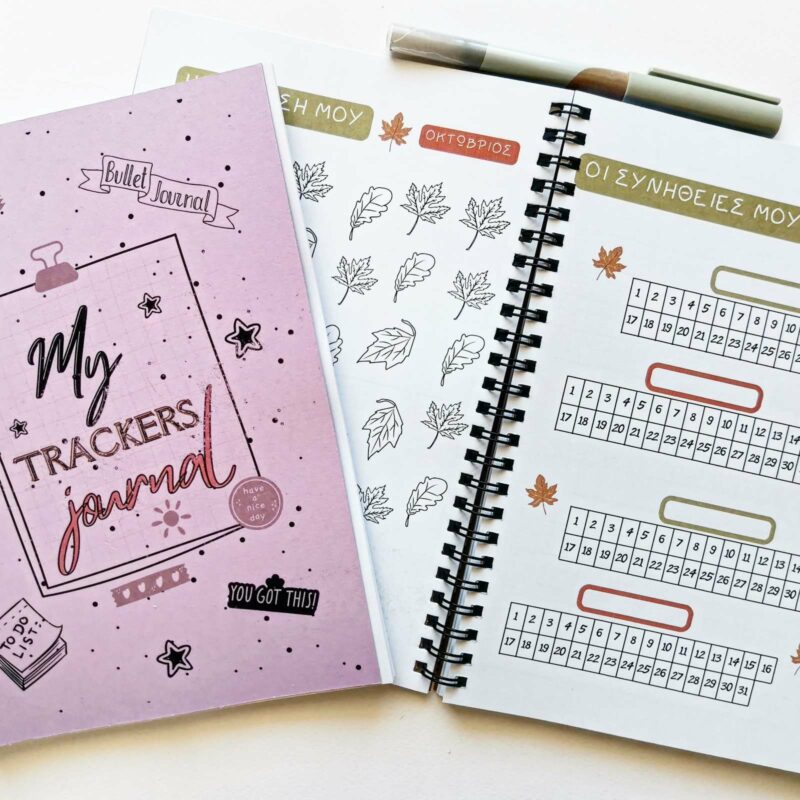 Bullet
Journal
My
TRACKERS
journal
have
a
nice
day
YOU GOT THIS!
TO DO
LIST:
ΜΟΥ
ΟΚΤΩΒΡΙΟΣ
ΟΙ ΣΥΝΗΘΕΙΕΣ ΜΟΥ
1 2 3 4 5 6 7 8 9 10
17 18 19 20 21 22 23 24 25
1 2 3 4 5 6 7 8 9 10 11 12 13 14
17 18 19 20 21 22 23 24 25 26 27 28 29
1 2 3 4 5 6 7 8 9 10 11 12 13 14
17 18 19 20 21 22 23 24 25 26 27 28 29 30
1 2 3 4 5 6 7 8 9 10 11 12 13 14 15 16
17 18 19 20 21 22 23 24 25 26 27 28 29 30 31